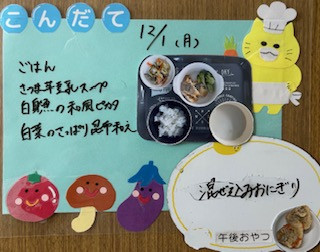 こんだて
12/1(月)
ごはん
さつま芋豆乳スープ
白身魚の和風ピカタ
白菜のさっぱり昆布和え
混ぜ込みおにぎり
午後おやつ